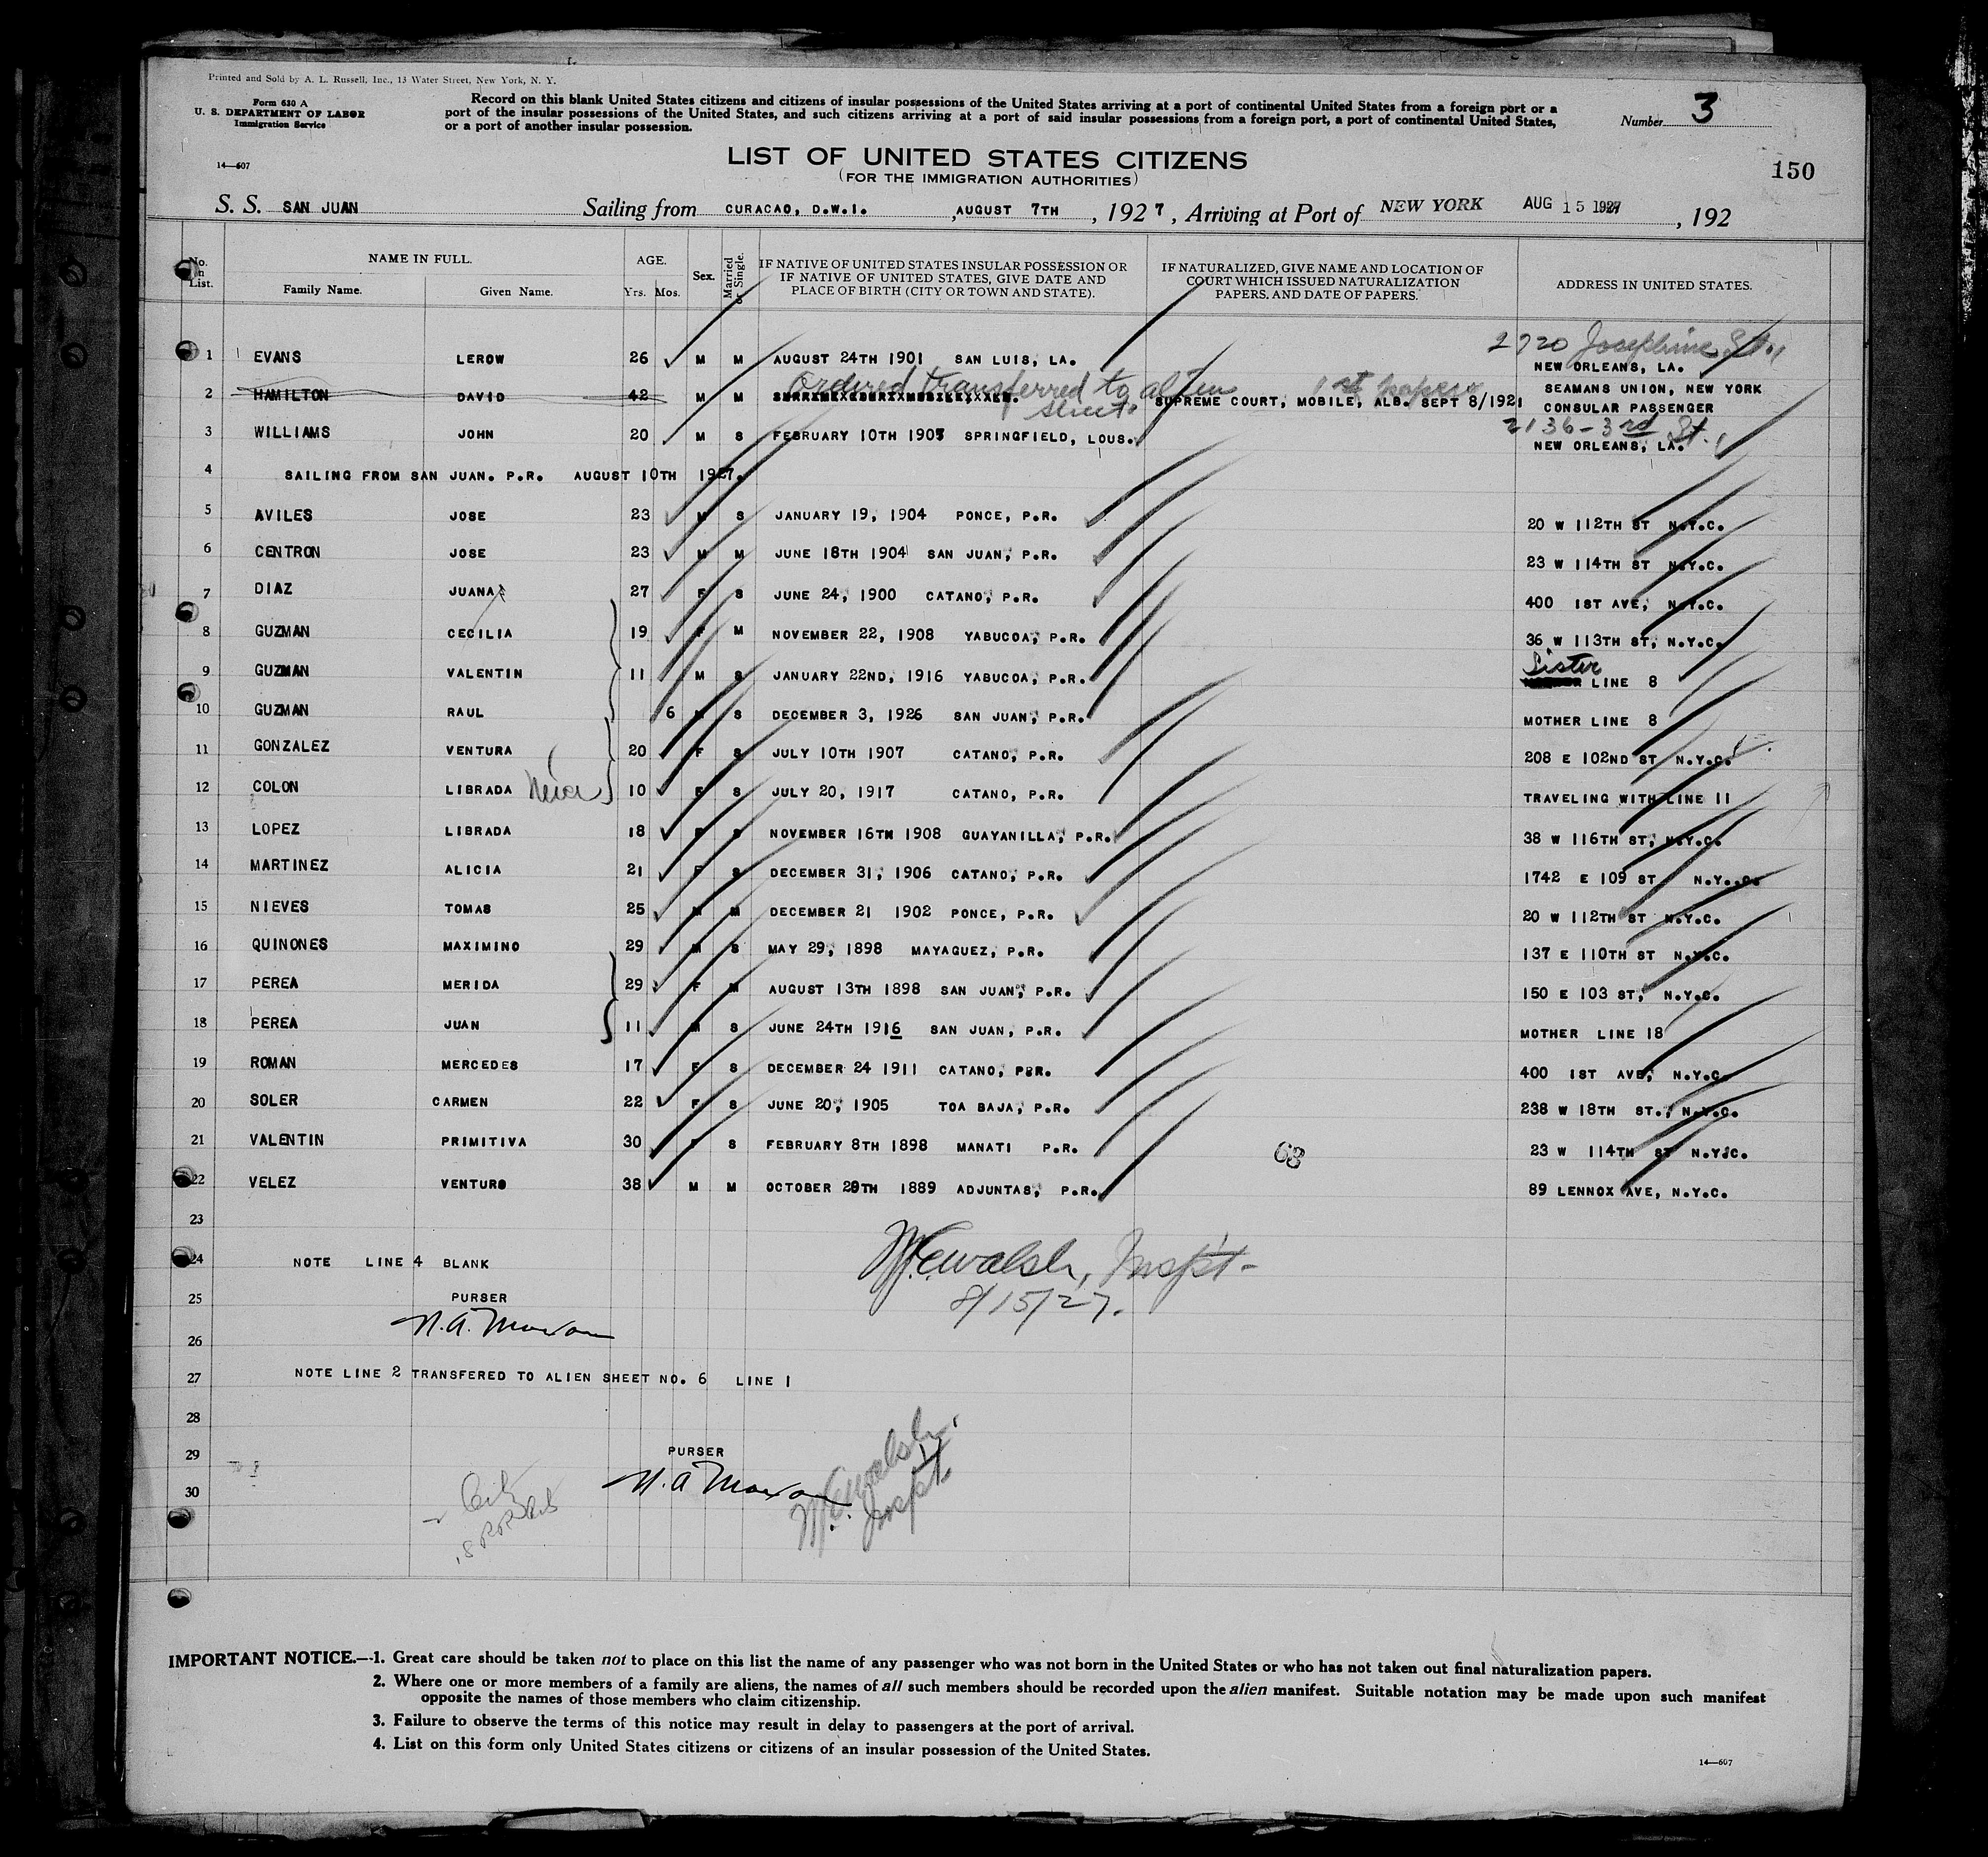 Printed and Sold by A. L. Russell, Inc., 13 Water Street, New York, N. Y.
Form 630 A
U. S. DEPARTMENT OF LABOR
Immigration Service
14—607
Record on this blank United States citizens and citizens of insular possessions of the United States arriving at a port of continental United States from a foreign port or a
port of the insular possessions of the United States, and such citizens arriving at a port of said insular possessions from a foreign port, a port of continental United States,
or a port of another insular possession.
Number 3
150
LIST OF UNITED STATES CITIZENS
(FOR THE IMMIGRATION AUTHORITIES)
S. S. SAN JUAN Sailing from CURACAO, D.W.I. ,AUGUST 7TH , 1927 , Arriving at Port of NEW YORK AUG 15 1927 , 192
No. in List. NAME IN FULL. Family Name. Given Name. AGE. Yrs. Mos. Sex. Married or Single. IF NATIVE OF UNITED STATES INSULAR POSSESSION OR IF NATIVE OF UNITED STATES, GIVE DATE AND PLACE OF BIRTH (CITY OR TOWN AND STATE). IF NATURALIZED, GIVE NAME AND LOCATION OF COURT WHICH ISSUED NATURALIZATION PAPERS, AND DATE OF PAPERS. ADDRESS IN UNITED STATES.
2720 Josephine St.,
1 EVANS LEROW 26 M M AUGUST 24TH 1901 SAN LUIS, LA. NEW ORLEANS, LA.
Ordered transferred to alien sheet. 1st papers
2 HAMILTON DAVID 42 M M SUPREME COURT, MOBILE, ALB. SEPT 8/1921 SEAMANS UNION, NEW YORK
CONSULAR PASSENGER
2136-3rd St.,
3 WILLIAMS JOHN 20 M S FEBRUARY 10TH 1907 SPRINGFIELD, LOUS. NEW ORLEANS, LA.
4 SAILING FROM SAN JUAN. P.R. AUGUST 10TH 1927.
5 AVILES JOSE 23 M S JANUARY 19, 1904 PONCE, P.R. 20 W 112TH ST N.Y.C.
6 CENTRON JOSE 23 M M JUNE 18TH 1904 SAN JUAN, P.R. 23 W 114TH ST N.Y.C.
7 DIAZ JUANA 27 F S JUNE 24, 1900 CATANO, P.R. 400 1ST AVE, N.Y.C.
8 GUZMAN CECILIA 19 F M NOVEMBER 22, 1908 YABUCOA, P.R. 36 W 113TH ST, N.Y.C.
9 GUZMAN VALENTIN 11 M S JANUARY 22ND, 1916 YABUCOA, P.R. Sister LINE 8
10 GUZMAN RAUL 6 M S DECEMBER 3, 1926 SAN JUAN, P.R. MOTHER LINE 8
11 GONZALEZ VENTURA 20 F S JULY 10TH 1907 CATANO, P.R. 208 E 102ND ST N.Y.C.
12 COLON LIBRADA Niece 10 F S JULY 20, 1917 CATANO, P.R. TRAVELING WITH LINE 11
13 LOPEZ LIBRADA 18 F S NOVEMBER 16TH 1908 GUAYANILLA, P.R. 38 W 116TH ST, N.Y.C.
14 MARTINEZ ALICIA 21 F S DECEMBER 31, 1906 CATANO, P.R. 1742 E 109 ST N.Y..C.
15 NIEVES TOMAS 25 M M DECEMBER 21 1902 PONCE, P.R. 20 W 112TH ST N.Y.C.
16 QUINONES MAXIMINO 29 M S MAY 29, 1898 MAYAGUEZ, P.R. 137 E 110TH ST N.Y.C.
17 PEREA MERIDA 29 F M AUGUST 13TH 1898 SAN JUAN, P.R. 150 E 103 ST, N.Y.C.
18 PEREA JUAN 11 M S JUNE 24TH 1916 SAN JUAN, P.R. MOTHER LINE 18
19 ROMAN MERCEDES 17 F S DECEMBER 24 1911 CATANO, P.R. 400 1ST AVE, N.Y.C.
20 SOLER CARMEN 22 F S JUNE 20, 1905 TOA BAJA, P.R. 238 W 18TH ST., N.Y.C.
21 VALENTIN PRIMITIVA 30 F S FEBRUARY 8TH 1898 MANATI P.R. 63 23 W 114TH ST N.Y.C.
22 VELEZ VENTURO 38 M M OCTOBER 20TH 1889 ADJUNTAS, P.R. 89 LENNOX AVE, N.Y.C.
23
24 NOTE LINE 4 BLANK
W.E. Walsh, Inspt-
8/15/27.
25 PURSER
26 N. A. Moxon
27 NOTE LINE 2 TRANSFERED TO ALIEN SHEET NO. 6 LINE 1
28
29 PURSER
30 N. A Moxon
W.E. Walsh. Inspt.
IMPORTANT NOTICE.—1. Great care should be taken not to place on this list the name of any passenger who was not born in the United States or who has not taken out final naturalization papers.
2. Where one or more members of a family are aliens, the names of all such members should be recorded upon the alien manifest. Suitable notation may be made upon such manifest
opposite the names of those members who claim citizenship.
3. Failure to observe the terms of this notice may result in delay to passengers at the port of arrival.
4. List on this form only United States citizens or citizens of an insular possession of the United States.
14—607